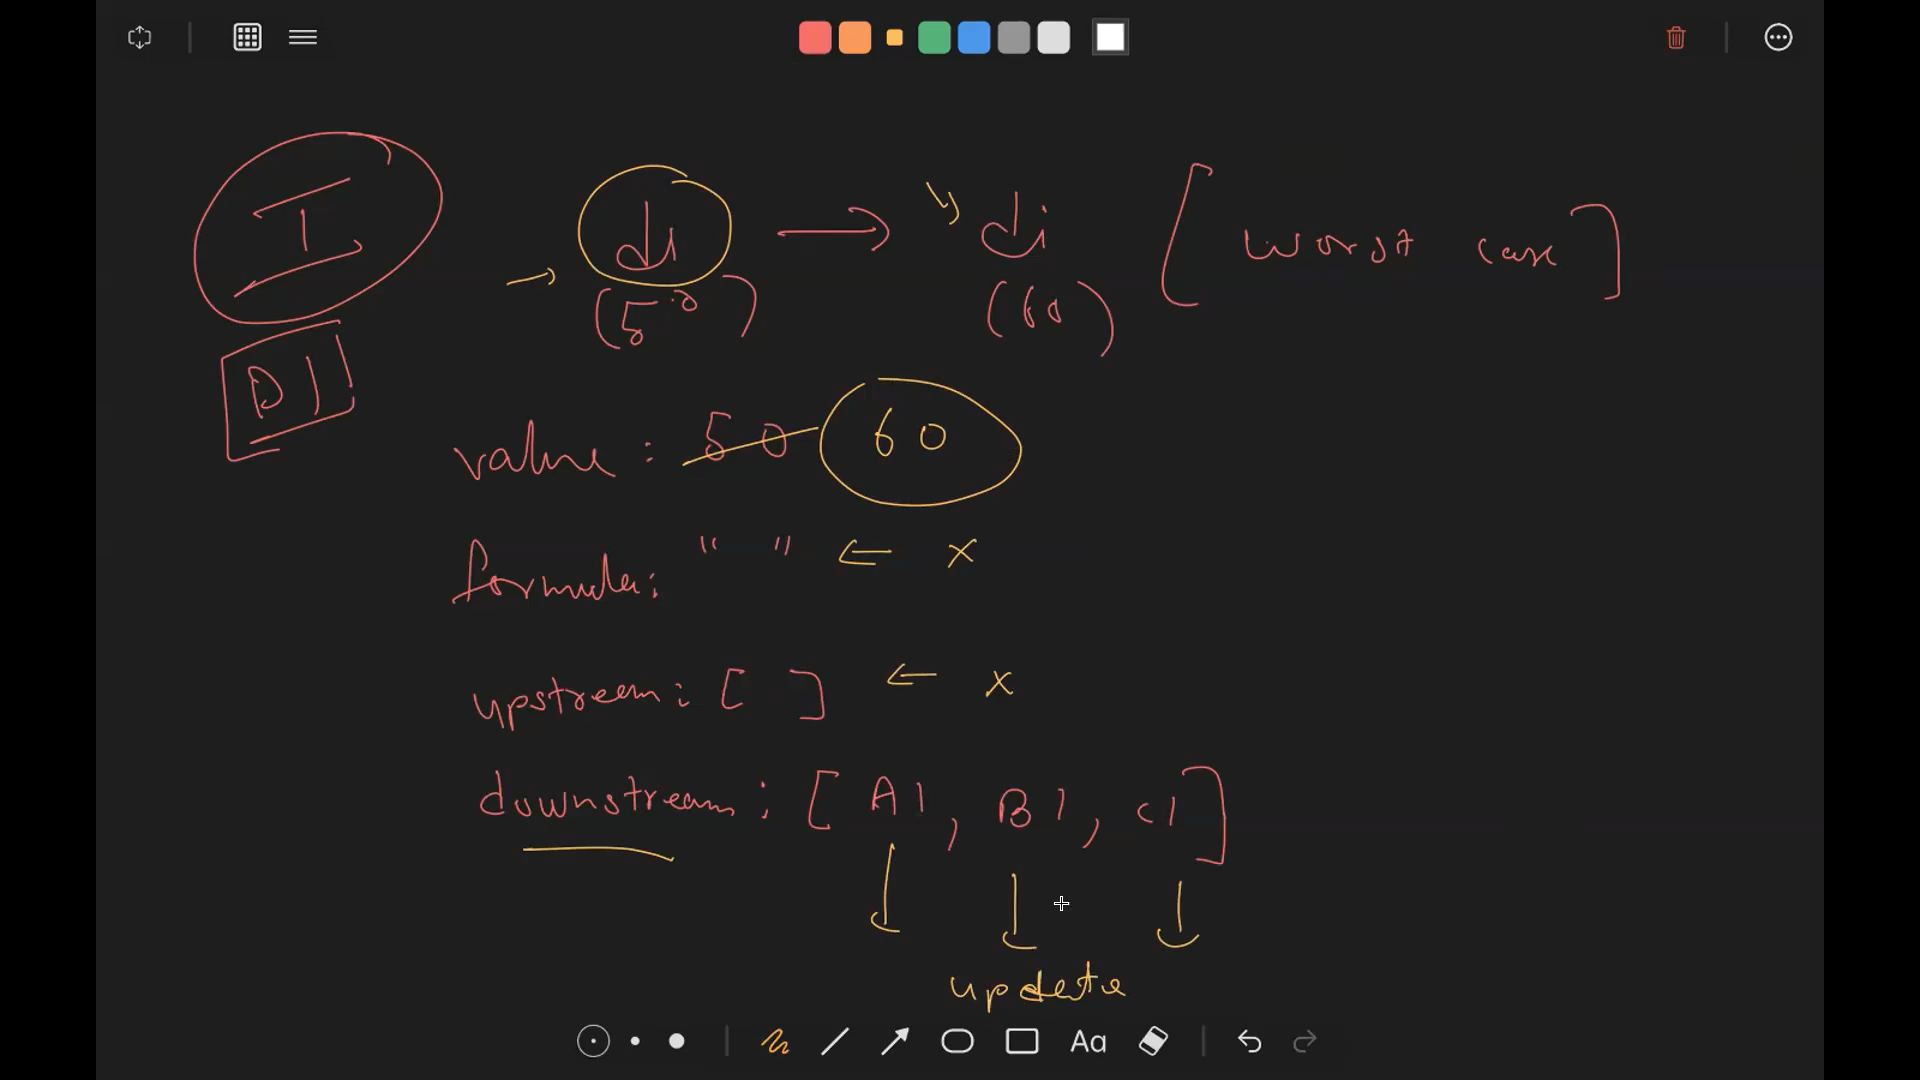 I
di → di [ worst case ]
(50) (60)
D1
value : 50 60
formula: " " ← x
upstream: [ ] ← x
downstream: [ A1, B1, C1 ]
update
Aa